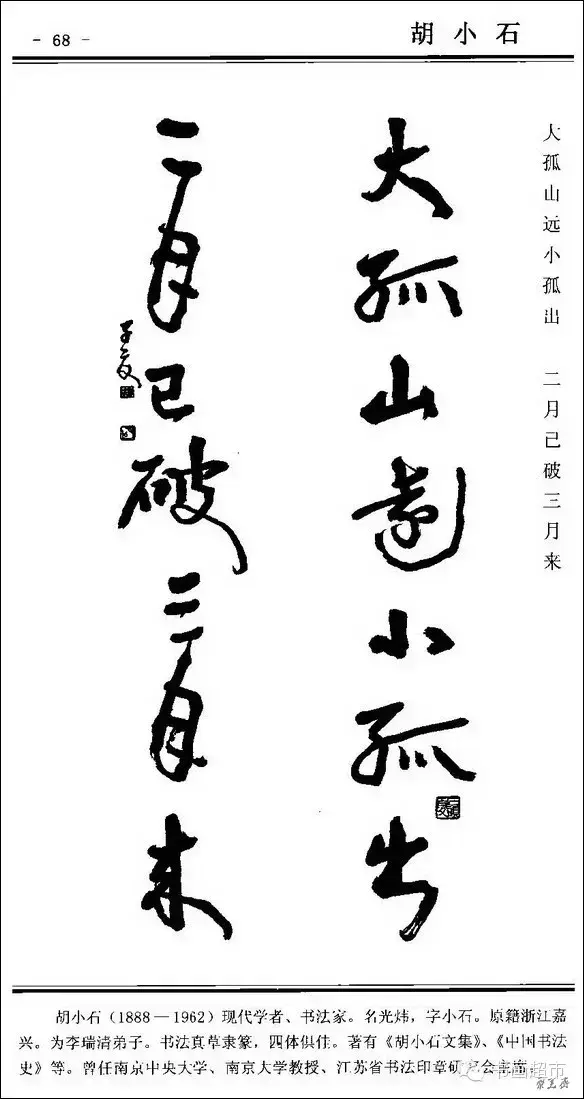 - 68 -
胡小石
大孤山远小孤出 二月已破三月来
大孤山遠小孤出
二月已破三月来
子夏
胡小石（1888—1962）现代学者、书法家。名光炜，字小石。原籍浙江嘉
兴。为李瑞清弟子。书法真草隶篆，四体俱佳。著有《胡小石文集》、《中国书法
史》等。曾任南京中央大学、南京大学教授、江苏省书法印章研究会
书画超市